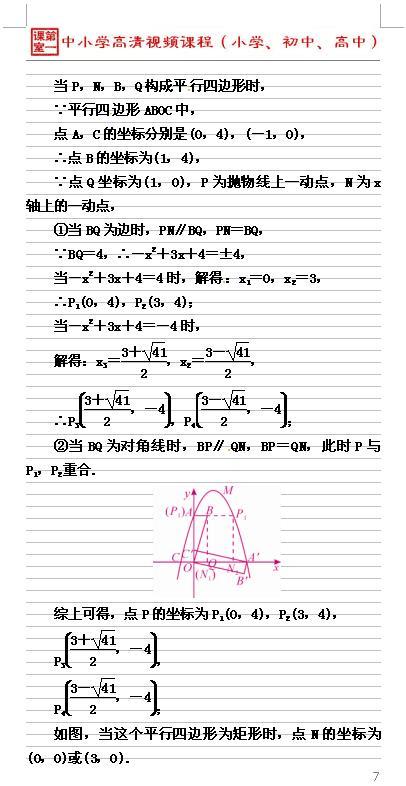 课第
室一
中小学高清视频课程（小学、初中、高中）
当P，N，B，Q构成平行四边形时，
∵平行四边形ABOC中，
点A，C的坐标分别是(0，4)，(－1，0)，
∴点B的坐标为(1，4)，
∵点Q坐标为(1，0)，P为抛物线上一动点，N为x
轴上的一动点，
①当BQ为边时，PN∥BQ，PN＝BQ，
∵BQ＝4，∴－x²＋3x＋4＝±4，
当－x²＋3x＋4＝4时，解得：x₁＝0，x₂＝3，
∴P₁(0，4)，P₂(3，4)；
当－x²＋3x＋4＝－4时，
解得：x₃＝(3＋√41)/2，x₂＝(3－√41)/2，
∴P₃((3＋√41)/2，－4)，P₄((3－√41)/2，－4)；
②当BQ为对角线时，BP∥QN，BP＝QN，此时P与
P₁，P₂重合.
y
M
(P₁)A
B
P₂
C
C′
O
Q
(N₁)
N₂
A′
x
B′
综上可得，点P的坐标为P₁(0，4)，P₂(3，4)，
P₃((3＋√41)/2，－4)，
P₄((3－√41)/2，－4)；
如图，当这个平行四边形为矩形时，点N的坐标为
(0，0)或(3，0).
7